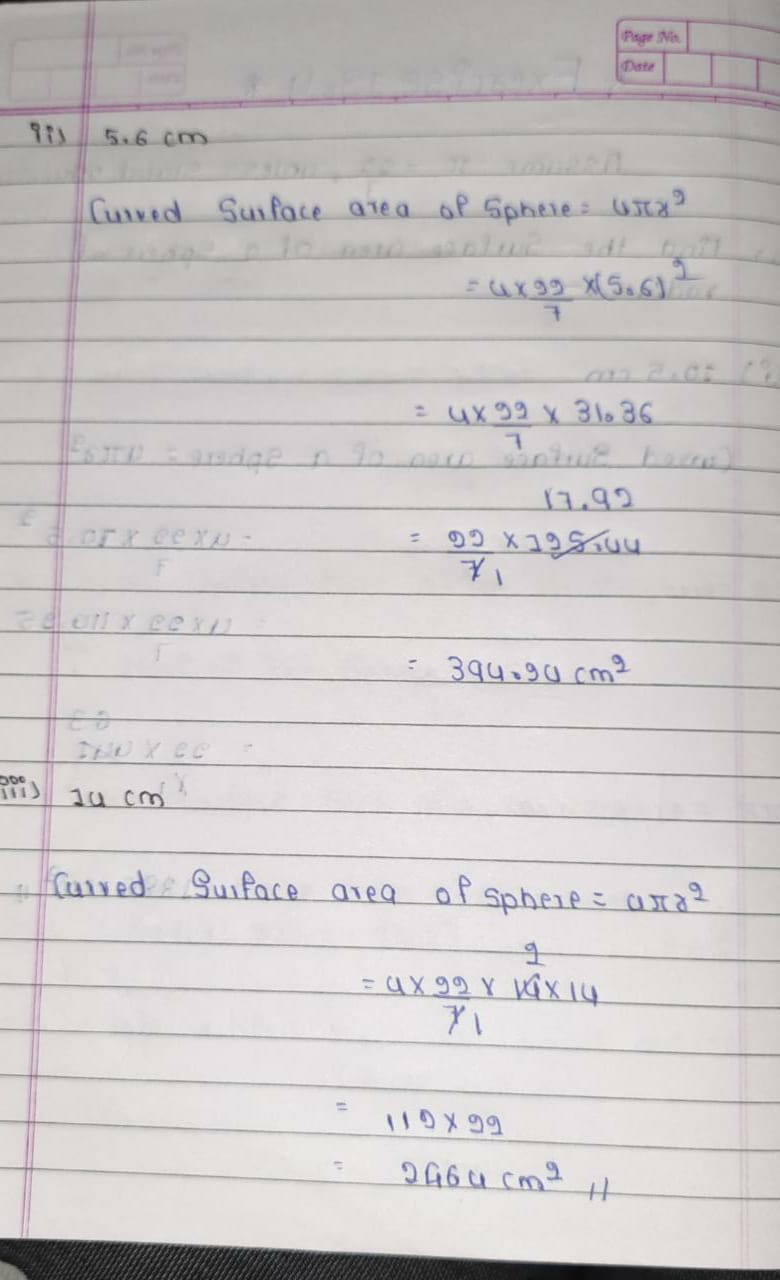 Page No.
Date
ii) 5.6 cm
Curved Surface area of Sphere = 4πr²
= 4 × 22/7 × (5.6)²
= 4 × 22/7 × 31.36
17.92
= 22/7 1 × 125.44
= 394.24 cm²
iii) 14 cm
Curved Surface area of Sphere = 4πr²
2
= 4 × 22/7 1 × 14 × 14
= 112 × 22
= 2464 cm² //